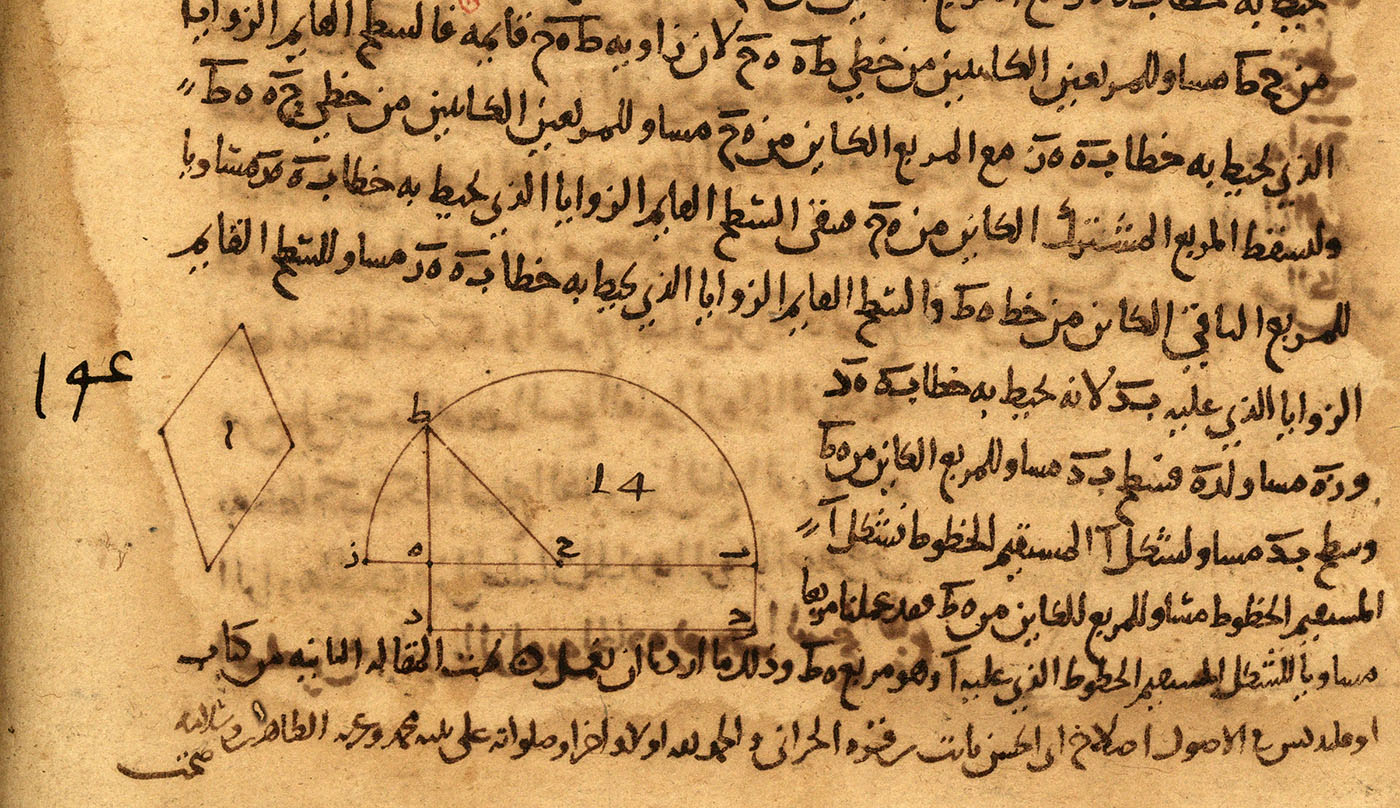 من ح ط مساو للمربعين الكاينين من خطي ط ه ه ح لان زاويه ط ه ح قايمه فالسطح القايم الزوايا
الذي يحيط به خطا ب ه ه ز مع المربع الكاين من ه ح مساو للمربعين الكاينين من خطي ح ه ه ط
ولنسقط المربع المشترك الكاين من ه ح فيبقى السطح القايم الزوايا الذي يحيط به خطا ب ه ه ز مساويا
للمربع الباقي الكاين من خط ه ط والسطح القايم الزوايا الذي يحيط به خطا ب ه ه ز مساو للسطح القايم
الزوايا الذي عليه ب د لانه يحيط به خطا ب ه ه د
و ز ه مساو ل د ه فسطح ب د مساو للمربع الكاين من ه ط
وسطح ب د مساو لشكل ا المستقيم الخطوط فشكل ا
المستقيم الخطوط مساو للمربع الكاين من ه ط فقد عملنا مربعا
مساويا للشكل المستقيم الخطوط الذي عليه ا وهو مربع ه ط وذلك ما اردنا ان نعمل تمت المقاله الثانيه من كتاب
اوقليدس في الاصول اصلاح ابي الحسن ثابت بن قره الحراني والحمد لله اولا واخرا وصلواته على نبيه محمد وعترته الطاهرين وسلامه
ط
ا
١٤
ز
ه
ح
ب
د
ج